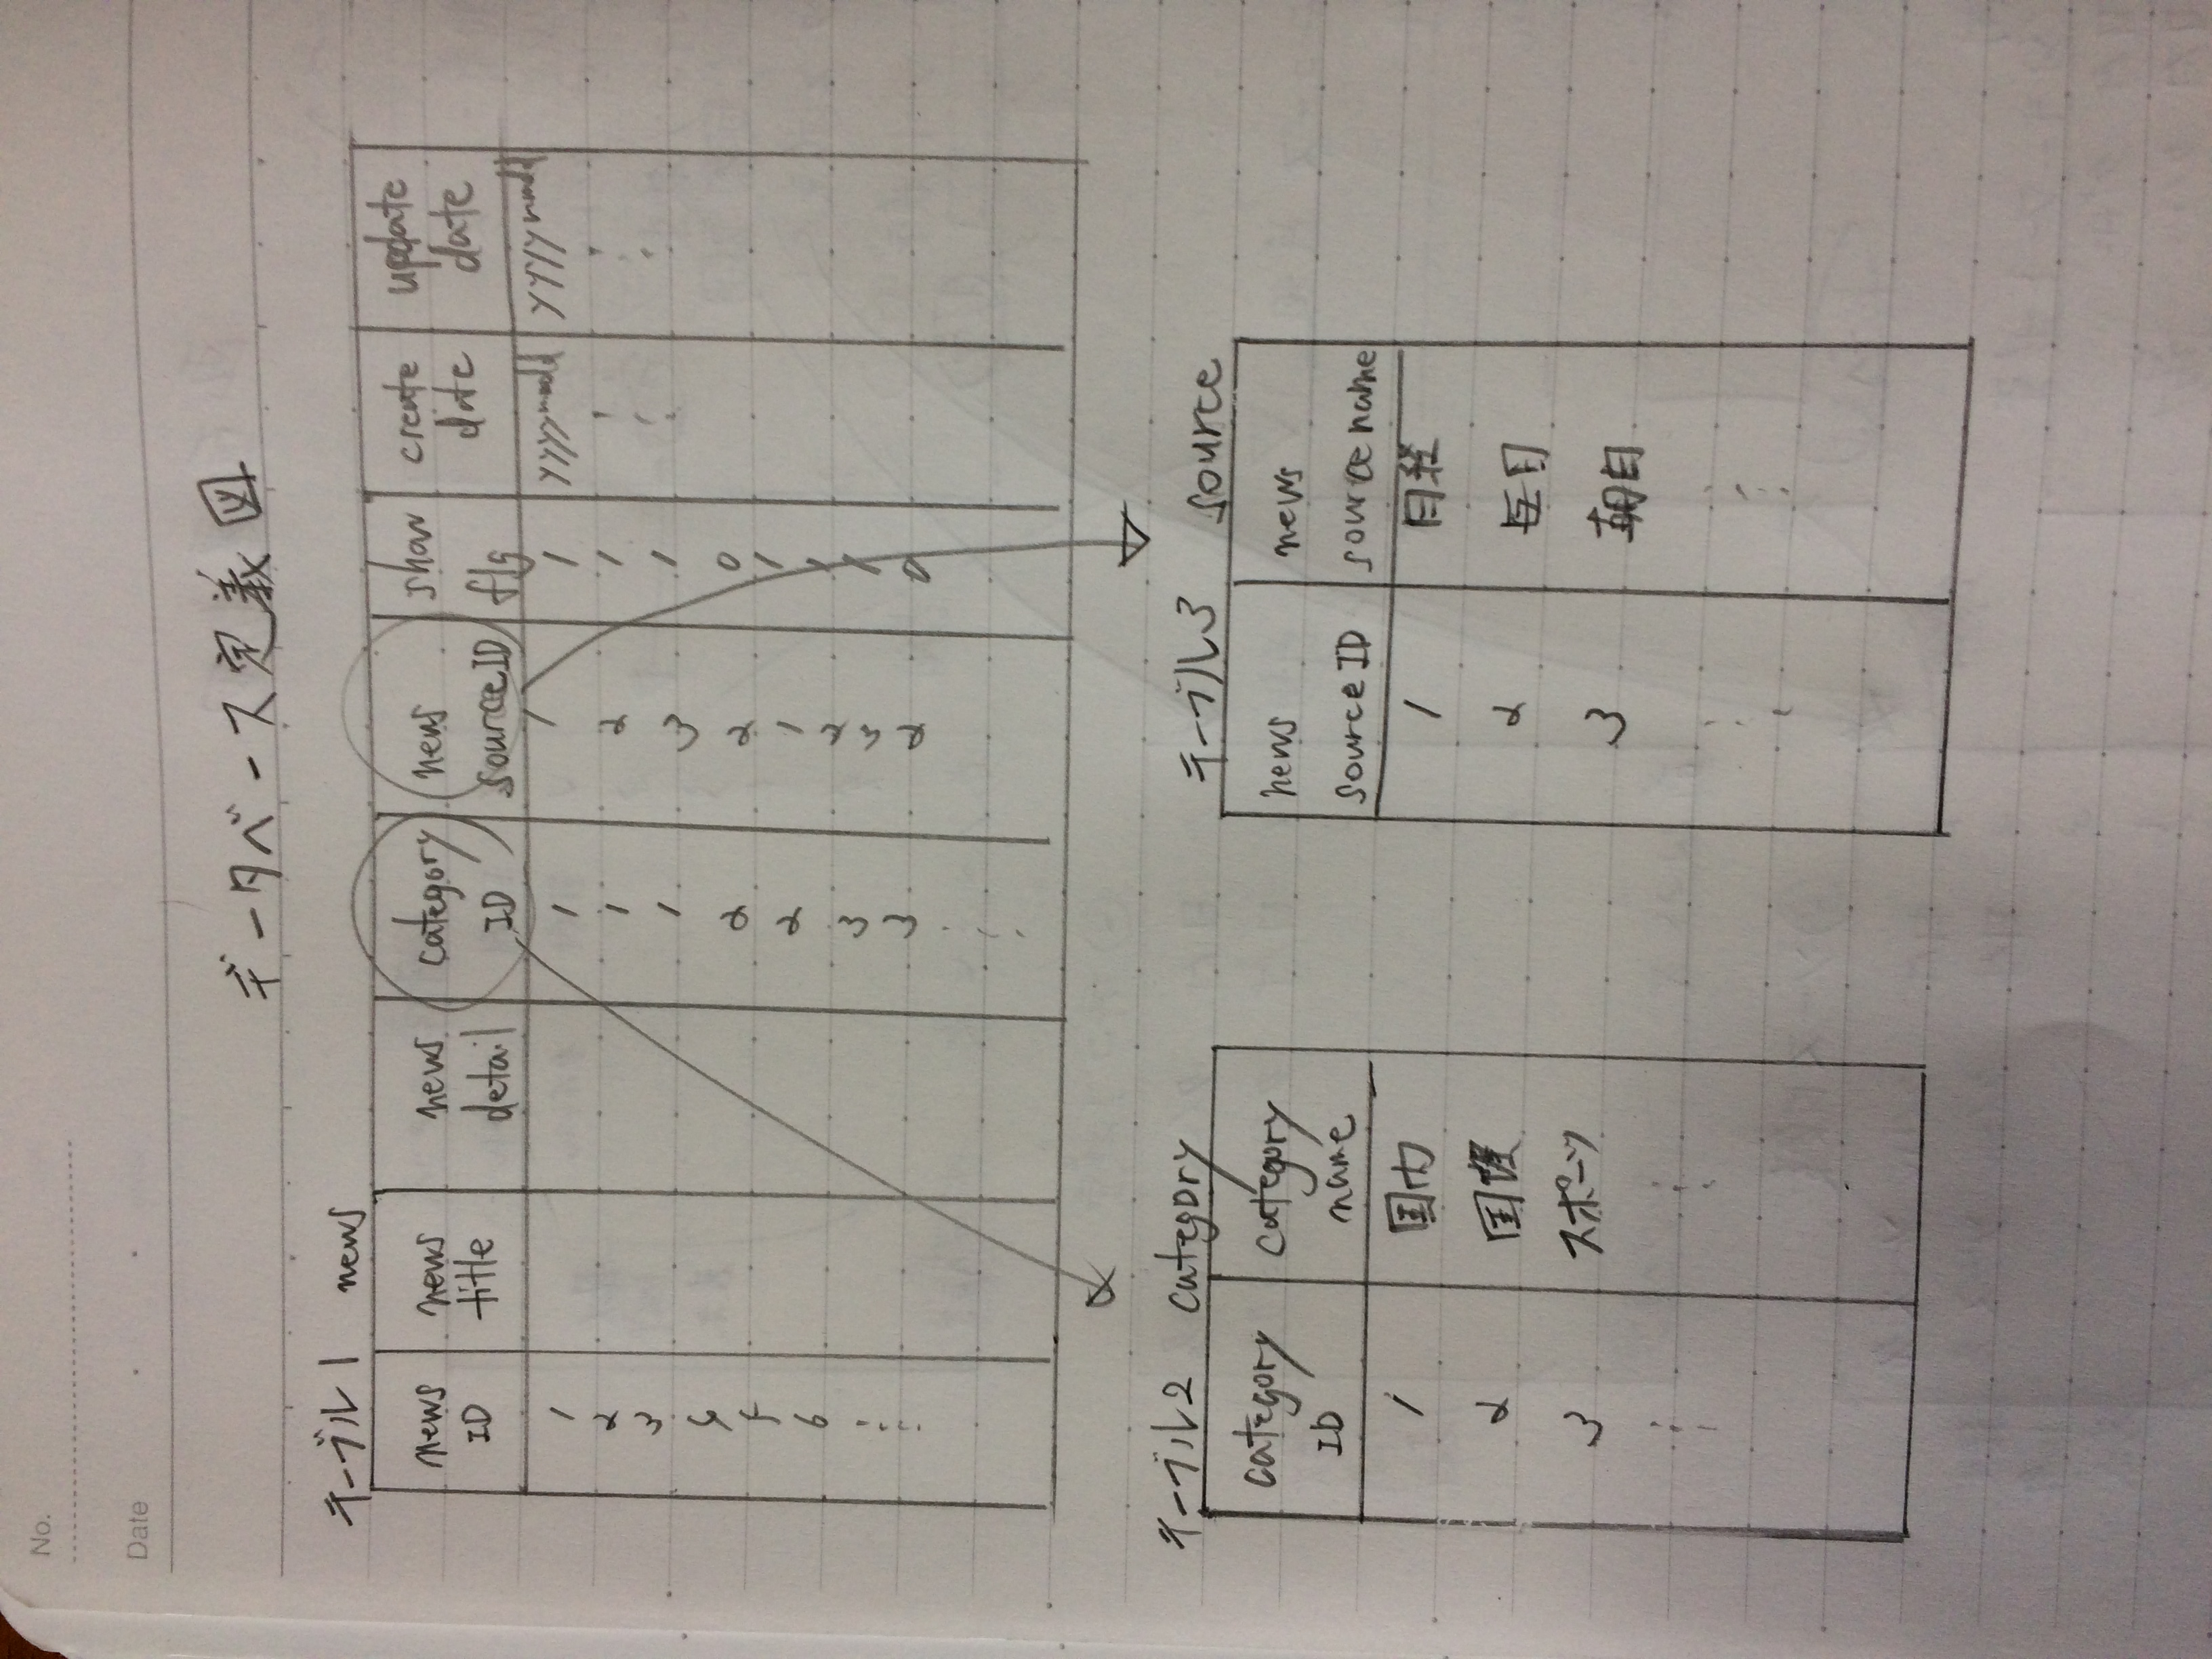 No.
Date
データベース定義図
テーブル1 news
news ID news title news detail category ID news sourceID show flg create date update date
1 1 1 1 yyyymmdd yyyymmdd
2 1 2 1
3 1 3 1
4 2 2 0
5 2 1 1
6 3 2 1
3 3 1
2 0
テーブル2 category
category ID category name
1 国内
2
3 スポーツ
テーブル3 source
news sourceID news source name
1 日経
2 毎日
3 朝日